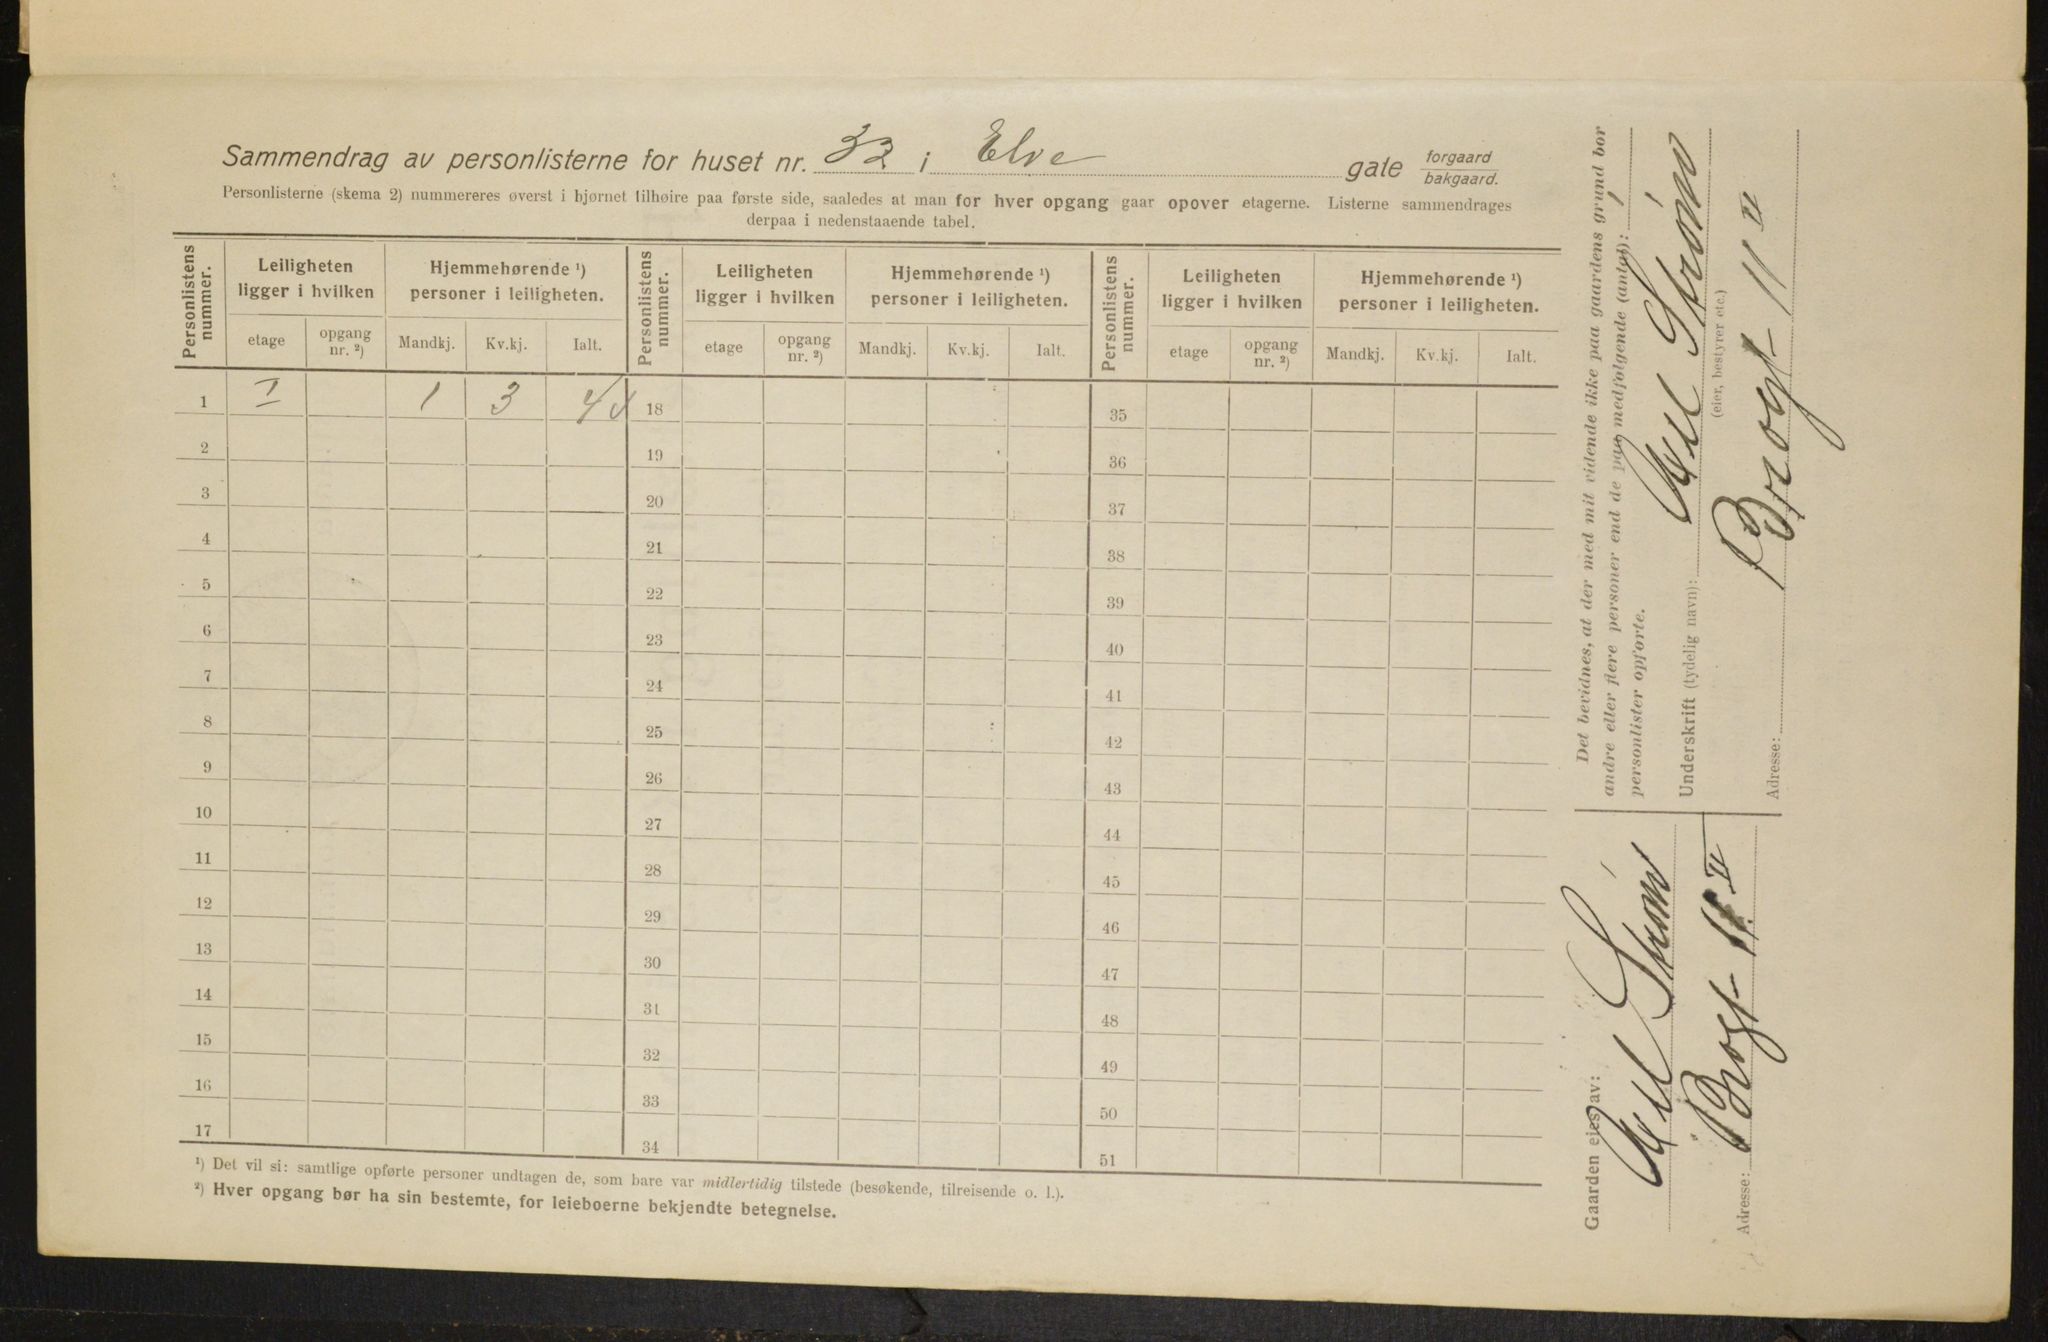 Sammendrag av personlisterne for huset nr. 33 i Elve gate forgaard bakgaard.
Personlisterne (skema 2) nummereres øverst i hjørnet tilhøire paa første side, saaledes at man for hver opgang gaar opover etagerne. Listerne sammendrages
derpaa i nedenstaaende tabel.
Personlistens nummer. Leiligheten ligger i hvilken Hjemmehørende ¹) personer i leiligheten. Personlistens nummer. Leiligheten ligger i hvilken Hjemmehørende ¹) personer i leiligheten. Personlistens nummer. Leiligheten ligger i hvilken Hjemmehørende ¹) personer i leiligheten.
etage opgang nr. ²) Mandkj. Kv.kj. Ialt. etage opgang nr. ²) Mandkj. Kv.kj. Ialt. etage opgang nr. ²) Mandkj. Kv.kj. Ialt.
1 I 1 3 4 18 35
2 19 36
3 20 37
4 21 38
5 22 39
6 23 40
7 24 41
8 25 42
9 26 43
10 27 44
11 28 45
12 29 46
13 30 47
14 31 48
15 32 49
16 33 50
17 34 51
¹) Det vil si: samtlige opførte personer undtagen de, som bare var midlertidig tilstede (besøkende, tilreisende o. l.).
²) Hver opgang bør ha sin bestemte, for leieboerne bekjendte betegnelse.
Det bevidnes, at der med mit vidende ikke paa gaardens grund bor
andre eller flere personer end de paa medfølgende (antal): 1
personlister opførte.
Underskrift (tydelig navn): Axel Strøm
(eier, bestyrer etc.)
Adresse: Brogt 11 II
Gaarden eies av:
Axel Strøm
Adresse: Brogt 11 II